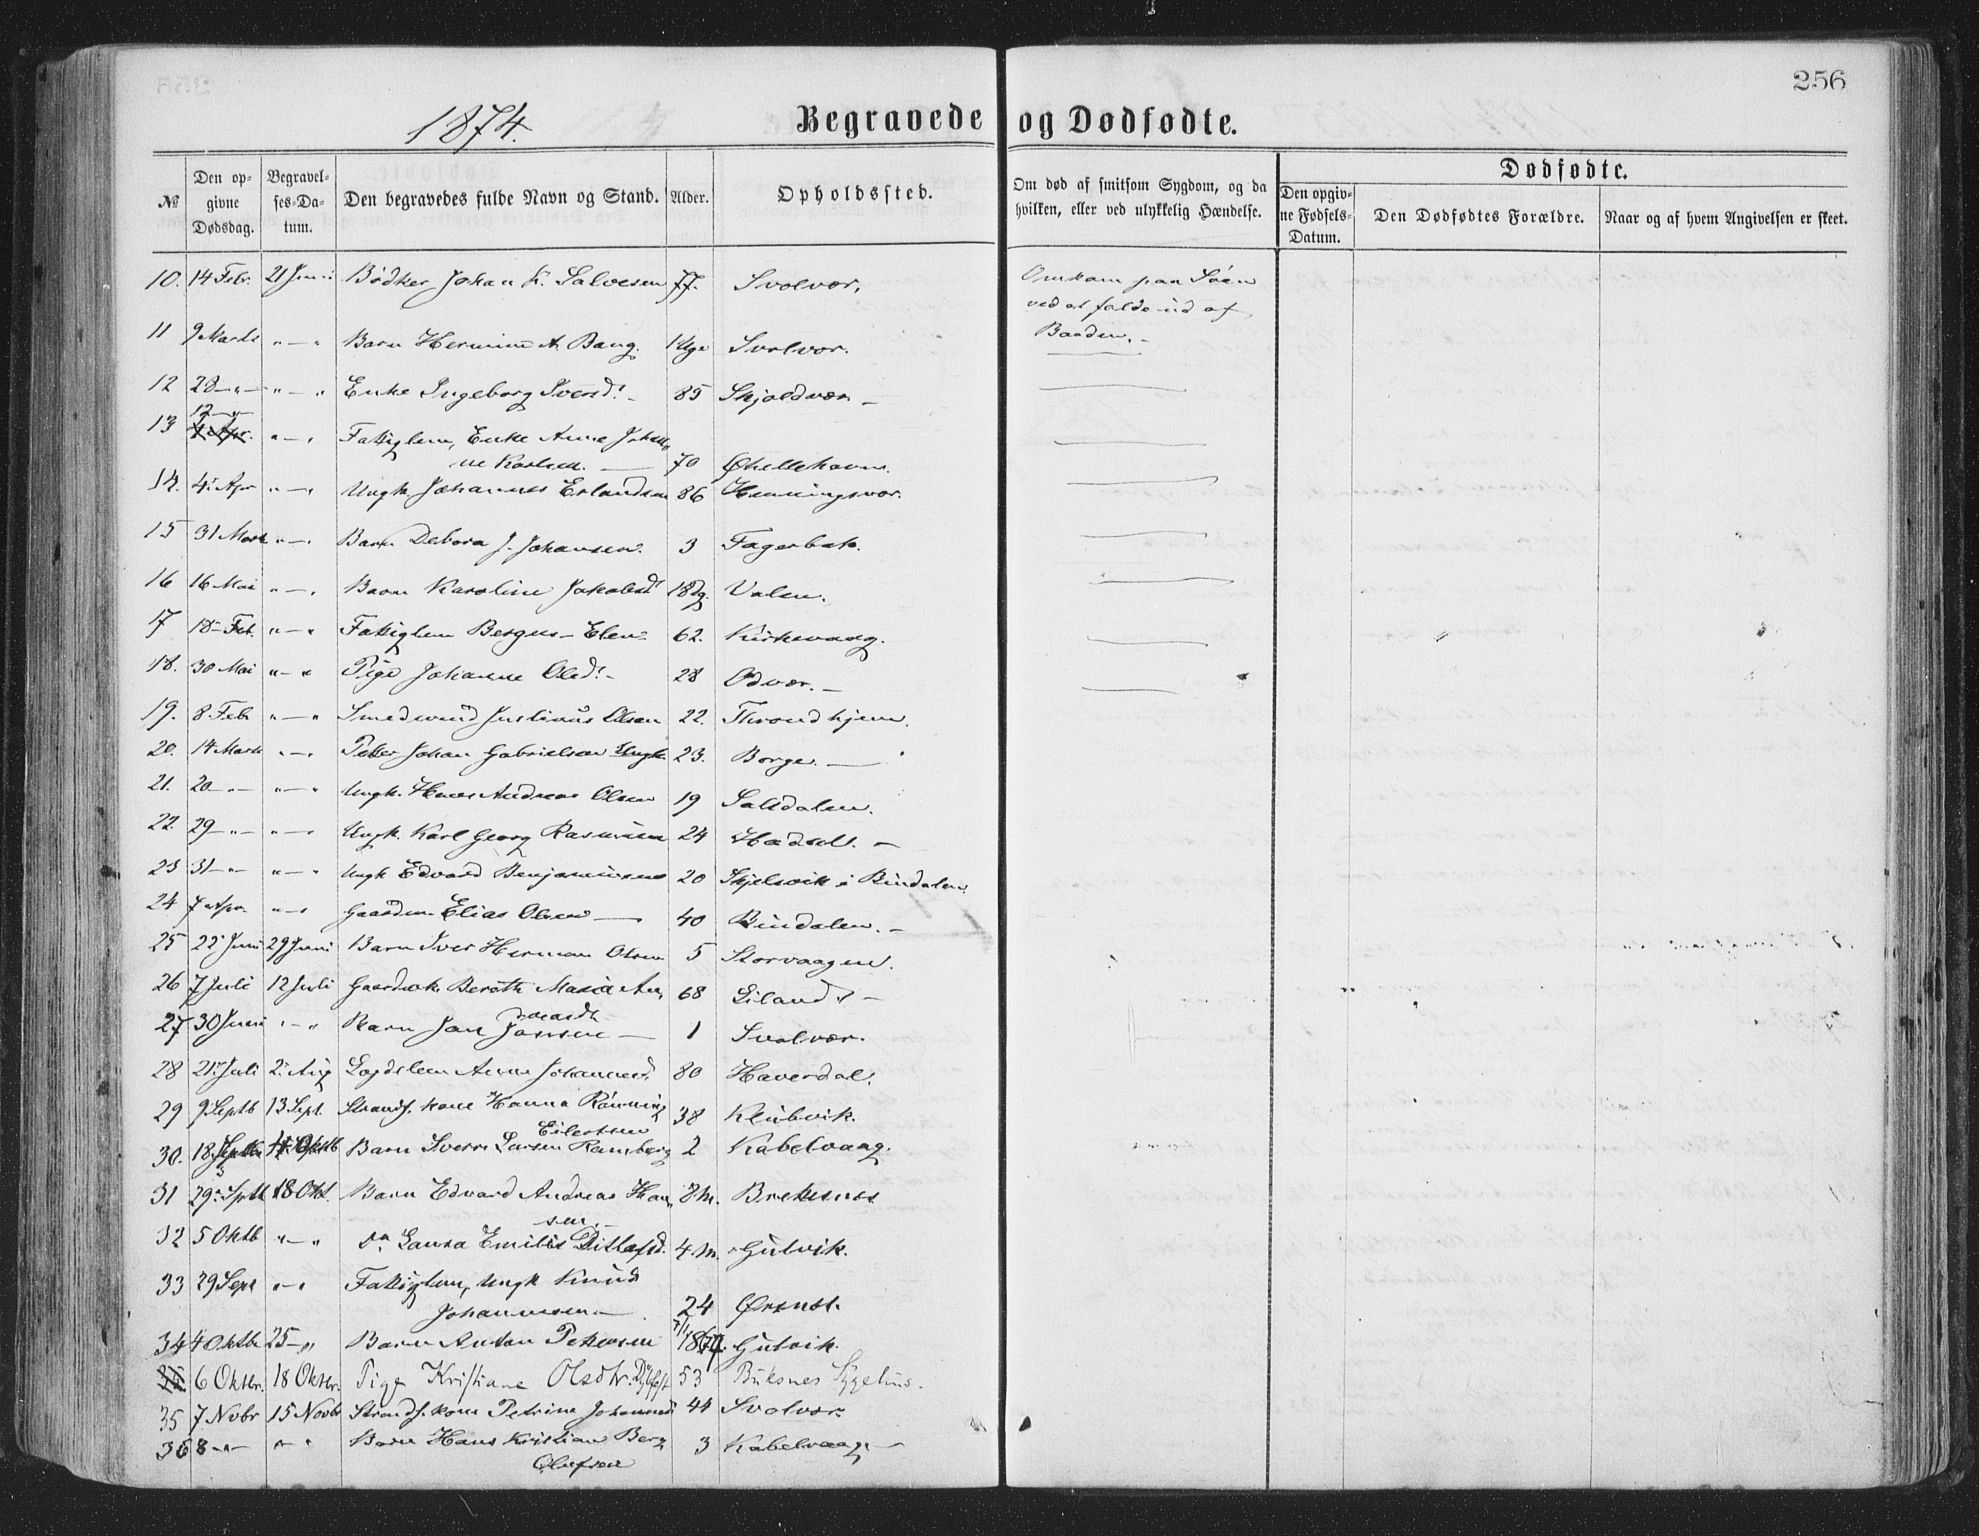 256
1874.
Begravede og Dødfødte.
Dødfødte.
№
Den op-
givne
Dødsdag.
Begravel-
ses-Da-
tum.
Den begravedes fulde Navn og Stand.
Alder.
Opholdssted.
Om død af smitsom Sygdom, og da
hvilken, eller ved ulykkelig Hændelse.
Den opgiv-
ne Fødsels-
Datum.
Den Dødfødtes Forældre.
Naar og af hvem Angivelsen er skeet.
10. 14 Febr. 21 Juni Bødker Johan K. Salvesen 77. Svolvær. Omkom paa Søen
ved at falde ud af
Baaden.
11 9 Marts " — " Barn Hermine A. Bang. 1 Uge Svolvær.
12 28 — " — " — " Enke Ingeborg Iversd. 85 Skjoldvær. —
12 — " —
13 " — " Fattiglem, Enke Anne Johan
ne Karlsen. — 70 Øhellehavn.
14. 4 Apr " — " Ungk. Johannes Erlandsen 86 Henningsvær.
15 31 Marts " — " Barn Debora J. Johansen. 3 Fagerbak.
16 16 Mai " — " Barn Karoline Jakobsd 18 dg. Valen.
17 18 Feb. " — " Fattiglem Bergus- Elen 62. Kirkevaag.
18. 30 Mai " — " Pige Johanne Olsd. — 28 Odvær. —
19. 8 Feb " — " Smedsvend Justinus Olsen 22. Throndhjem.
20. 14 Marts " — " Peter Johan Gabrielsen Ungk. 23. Borge. —
21. 20 — " — " — " Ungk. Hans Andreas Olsen 19 Saltdalen.
22. 29 — " — " — " Ungk. Karl Georg Rasmussen 24 Hadsel. —
23 31 — " — " — " Ungk Edvard Benjaminsen 20 Skjelsvik i Bindalen
24 7 Apr. " — " Gaardm. Elias Olsen — 40 Bindalen. —
25 22 Juni 29 Juni Barn Iver Herman Olsen 5 Storvaagen.
26 7 Juli 12 Juli Gaardmk. Bereth Maria An, 68 Eiland. —
27 30 Juni " — " Barn Jan Jansen — 1 Svolvær.
28 21 Juli 2 Aug Lægdslem Anne Johannesd. 80 Haverdal.
29 9 Septb 13 Sept. Strands. kone Hanna Rønning 38 Klubvik.
Eilertsen
30. 18 Barn Sverre Larsen Ramberg 2 Kabelvaag.
31 29 Septb 18 Okt. Barn Edvard Andreas Han 8 M. Breknes
sen. —
32 5 Oktb " — " do Laura Emilie Ditlefsd. 4 M. Gulvik.
33 29 Sept " — " Fattiglem, Ungk Knud
Johannesen — 24 Ørsnes.
34 4 Oktbr 25 — " Barn Anton Petersen 1874. Gulvik.
6 Oktbr. 18 Oktbr. Pige Kristiane Olsdtr. 53 Buksnes Sygehus.
35 7 Nvbr 15 Novbr Strands. kone Petrine Johannesd 44 Svolvær.
36 8 — " — " — " Barn Hans Kristian Berg 3 Kabelvaag —
Olufsen